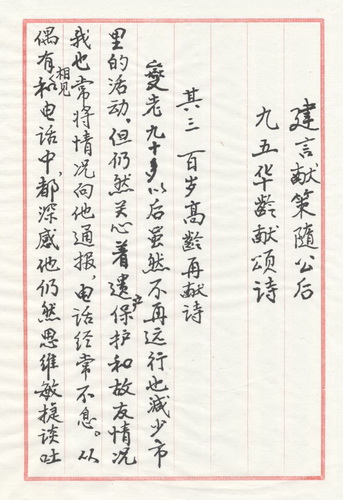 建言献策随公后
九五华龄献颂诗
其三 百岁高龄再献诗
燮老九十多以后虽然不再远行也减少市
里的活动。但仍然关心着遗产保护和故友情况
我也常将情况向他通报，电话经常不息。从
偶有相见和电话中，都深感他仍然思维敏捷谈吐